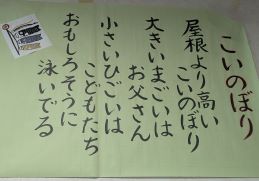 こいのぼり
屋根より高い
こいのぼり
大きいまごいは
お父さん
小さいひごいは
こどもたち
おもしろそうに
泳いでる